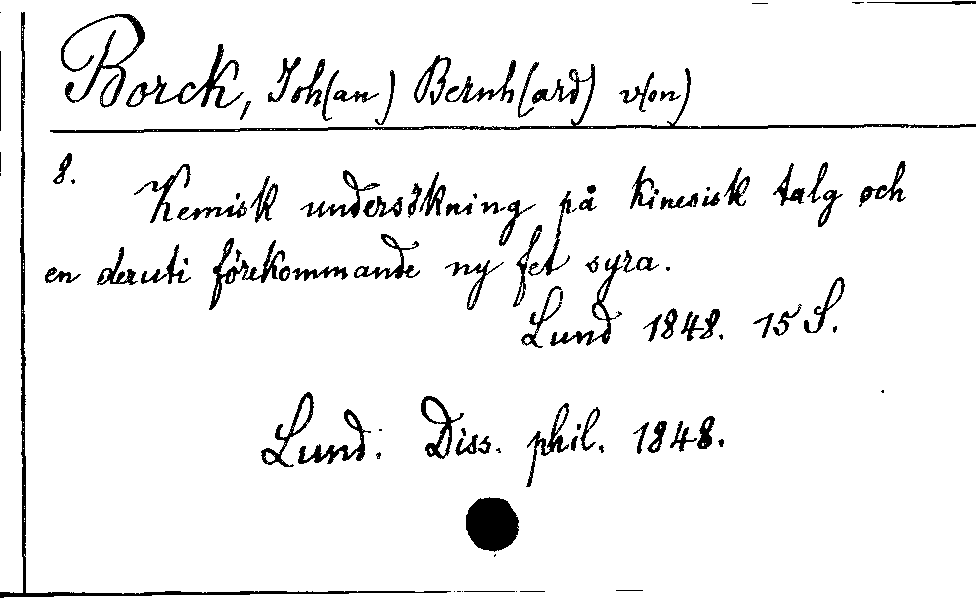 Borck, Joh(an) Bernh(ard) v(on)
8. Kemisk undersökning på kinesisk talg och
en deruti förekommande ny fet syra.
Lund 1848. 15 S.
Lund. Diss. phil. 1848.